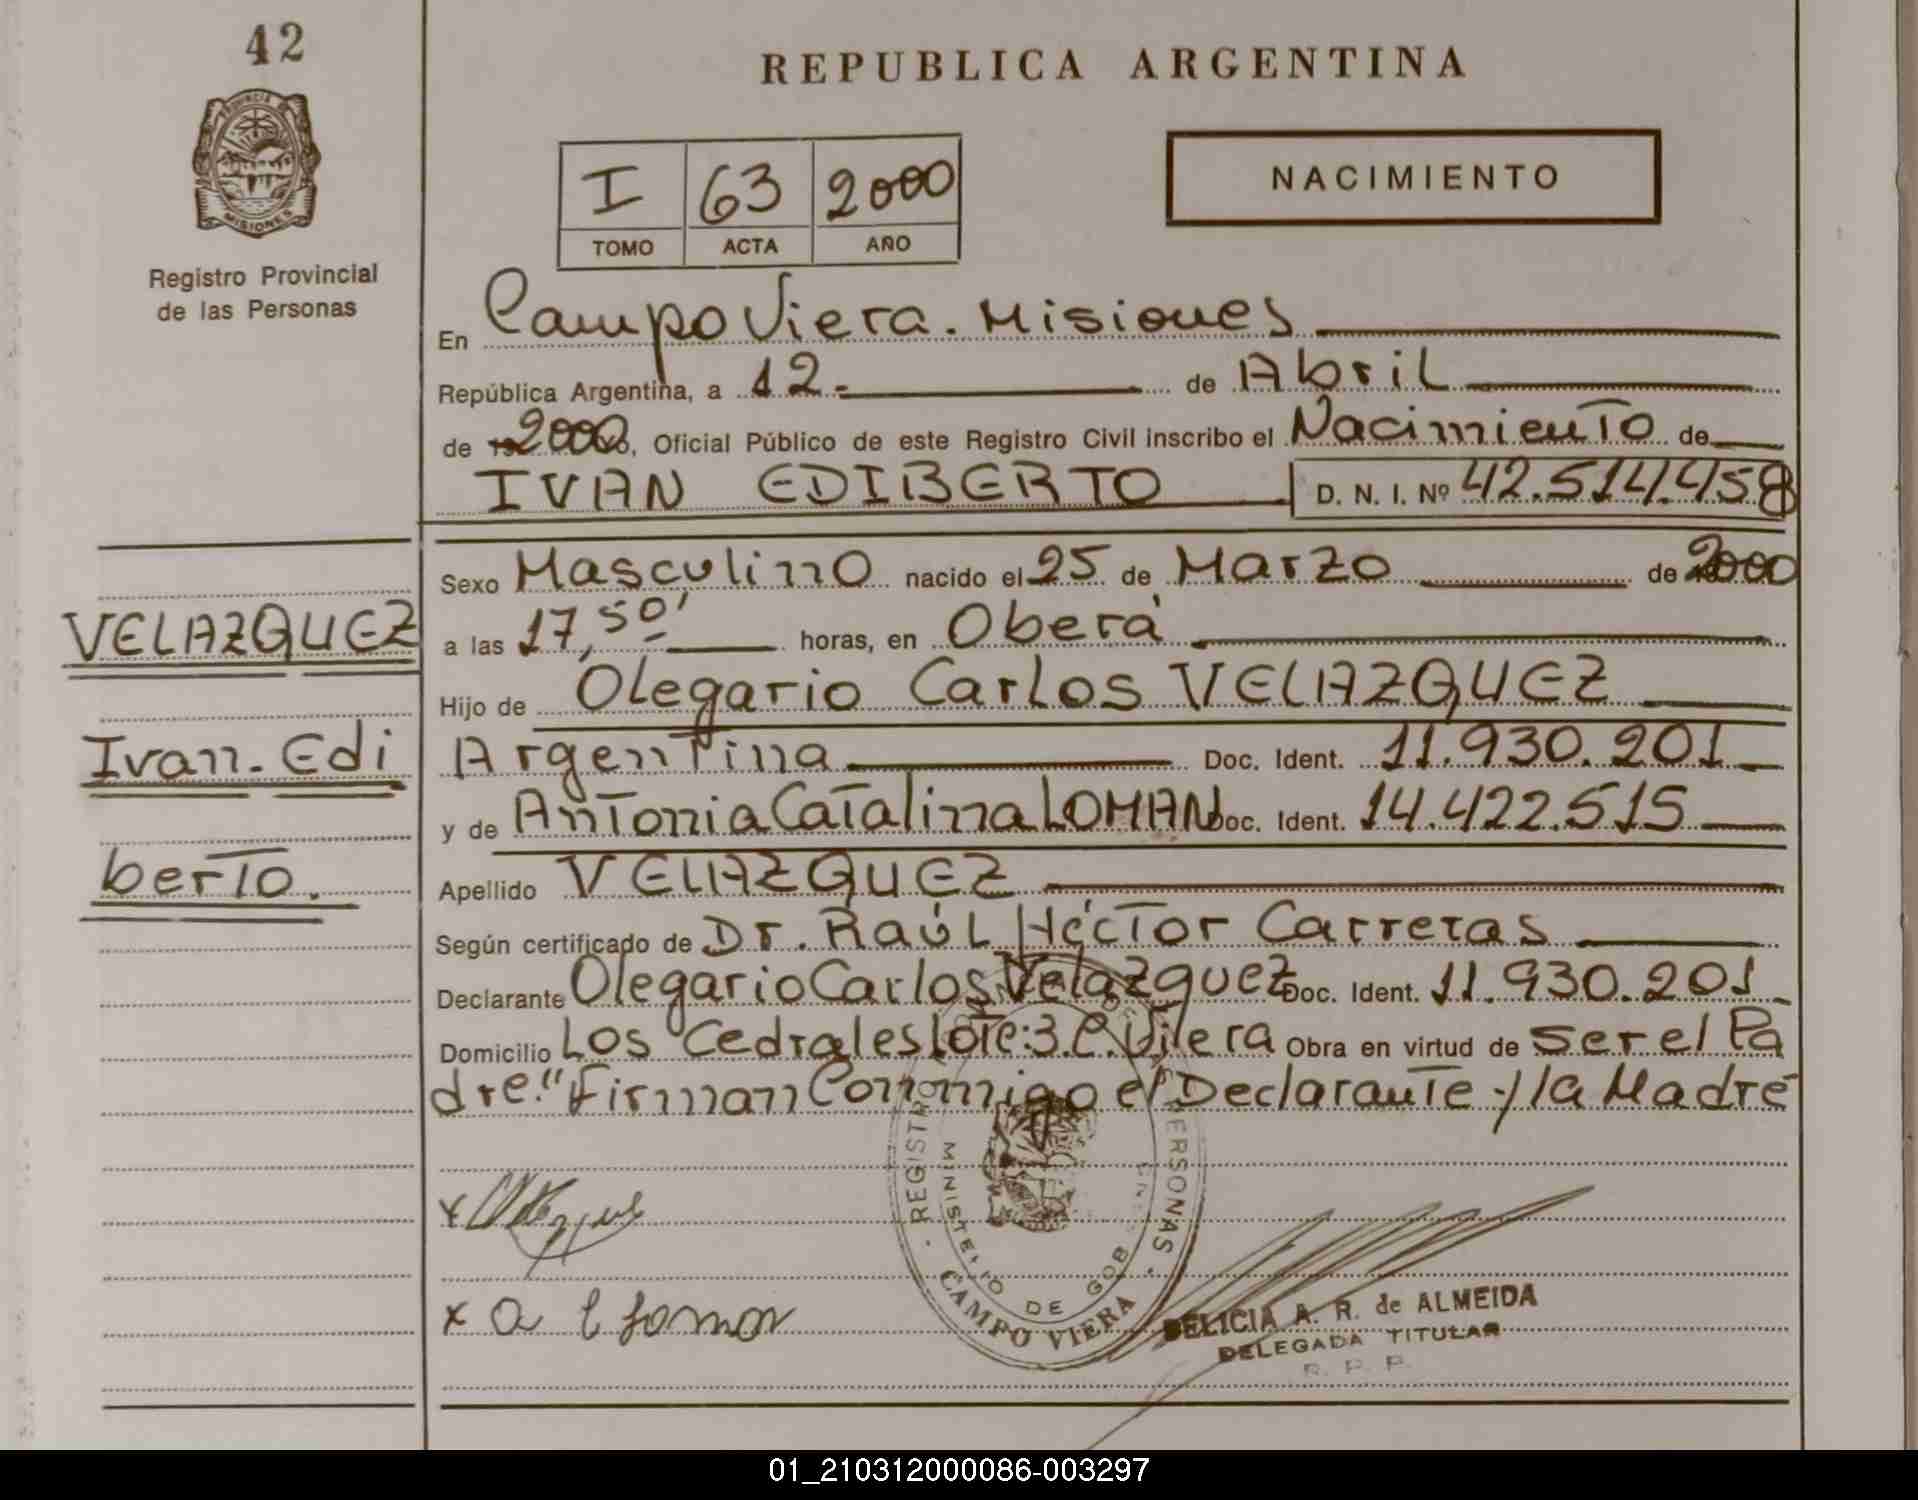 42
REPUBLICA ARGENTINA
PROVINCIA DE
MISIONES
Registro Provincial
de las Personas
NACIMIENTO
I 63 2000
TOMO ACTA AÑO
En Campo Viera. Misiones
República Argentina, a 12.- de Abril
de 2000, Oficial Público de este Registro Civil inscribo el Nacimiento de
IVAN EDIBERTO D. N. I. Nº 42.514.458
Sexo Masculino nacido el 25 de Marzo de 2000
VELAZQUEZ
a las 17,50' horas, en Oberá
Hijo de Olegario Carlos VELAZQUEZ
Ivan-Edi
Argentina Doc. Ident. 11.930.201
y de Antonia Catalina LOMAN Doc. Ident. 14.422.515
berto.
Apellido VELAZQUEZ
Según certificado de Dr. Raúl Héctor Carreras
Declarante Olegario Carlos Velazquez Doc. Ident. 11.930.201
Domicilio Los Cedrales Lote:3.C.Viera Obra en virtud de ser el Pa
dre." Firman Conmigo el Declarante y la Madre
REGISTRO PERSONAS
MINISTERIO DE GOB
CAMPO VIERA
x
x
DELICIA A. R. de ALMEIDA
DELEGADA TITULAR
R. P. P.
01_210312000086-003297